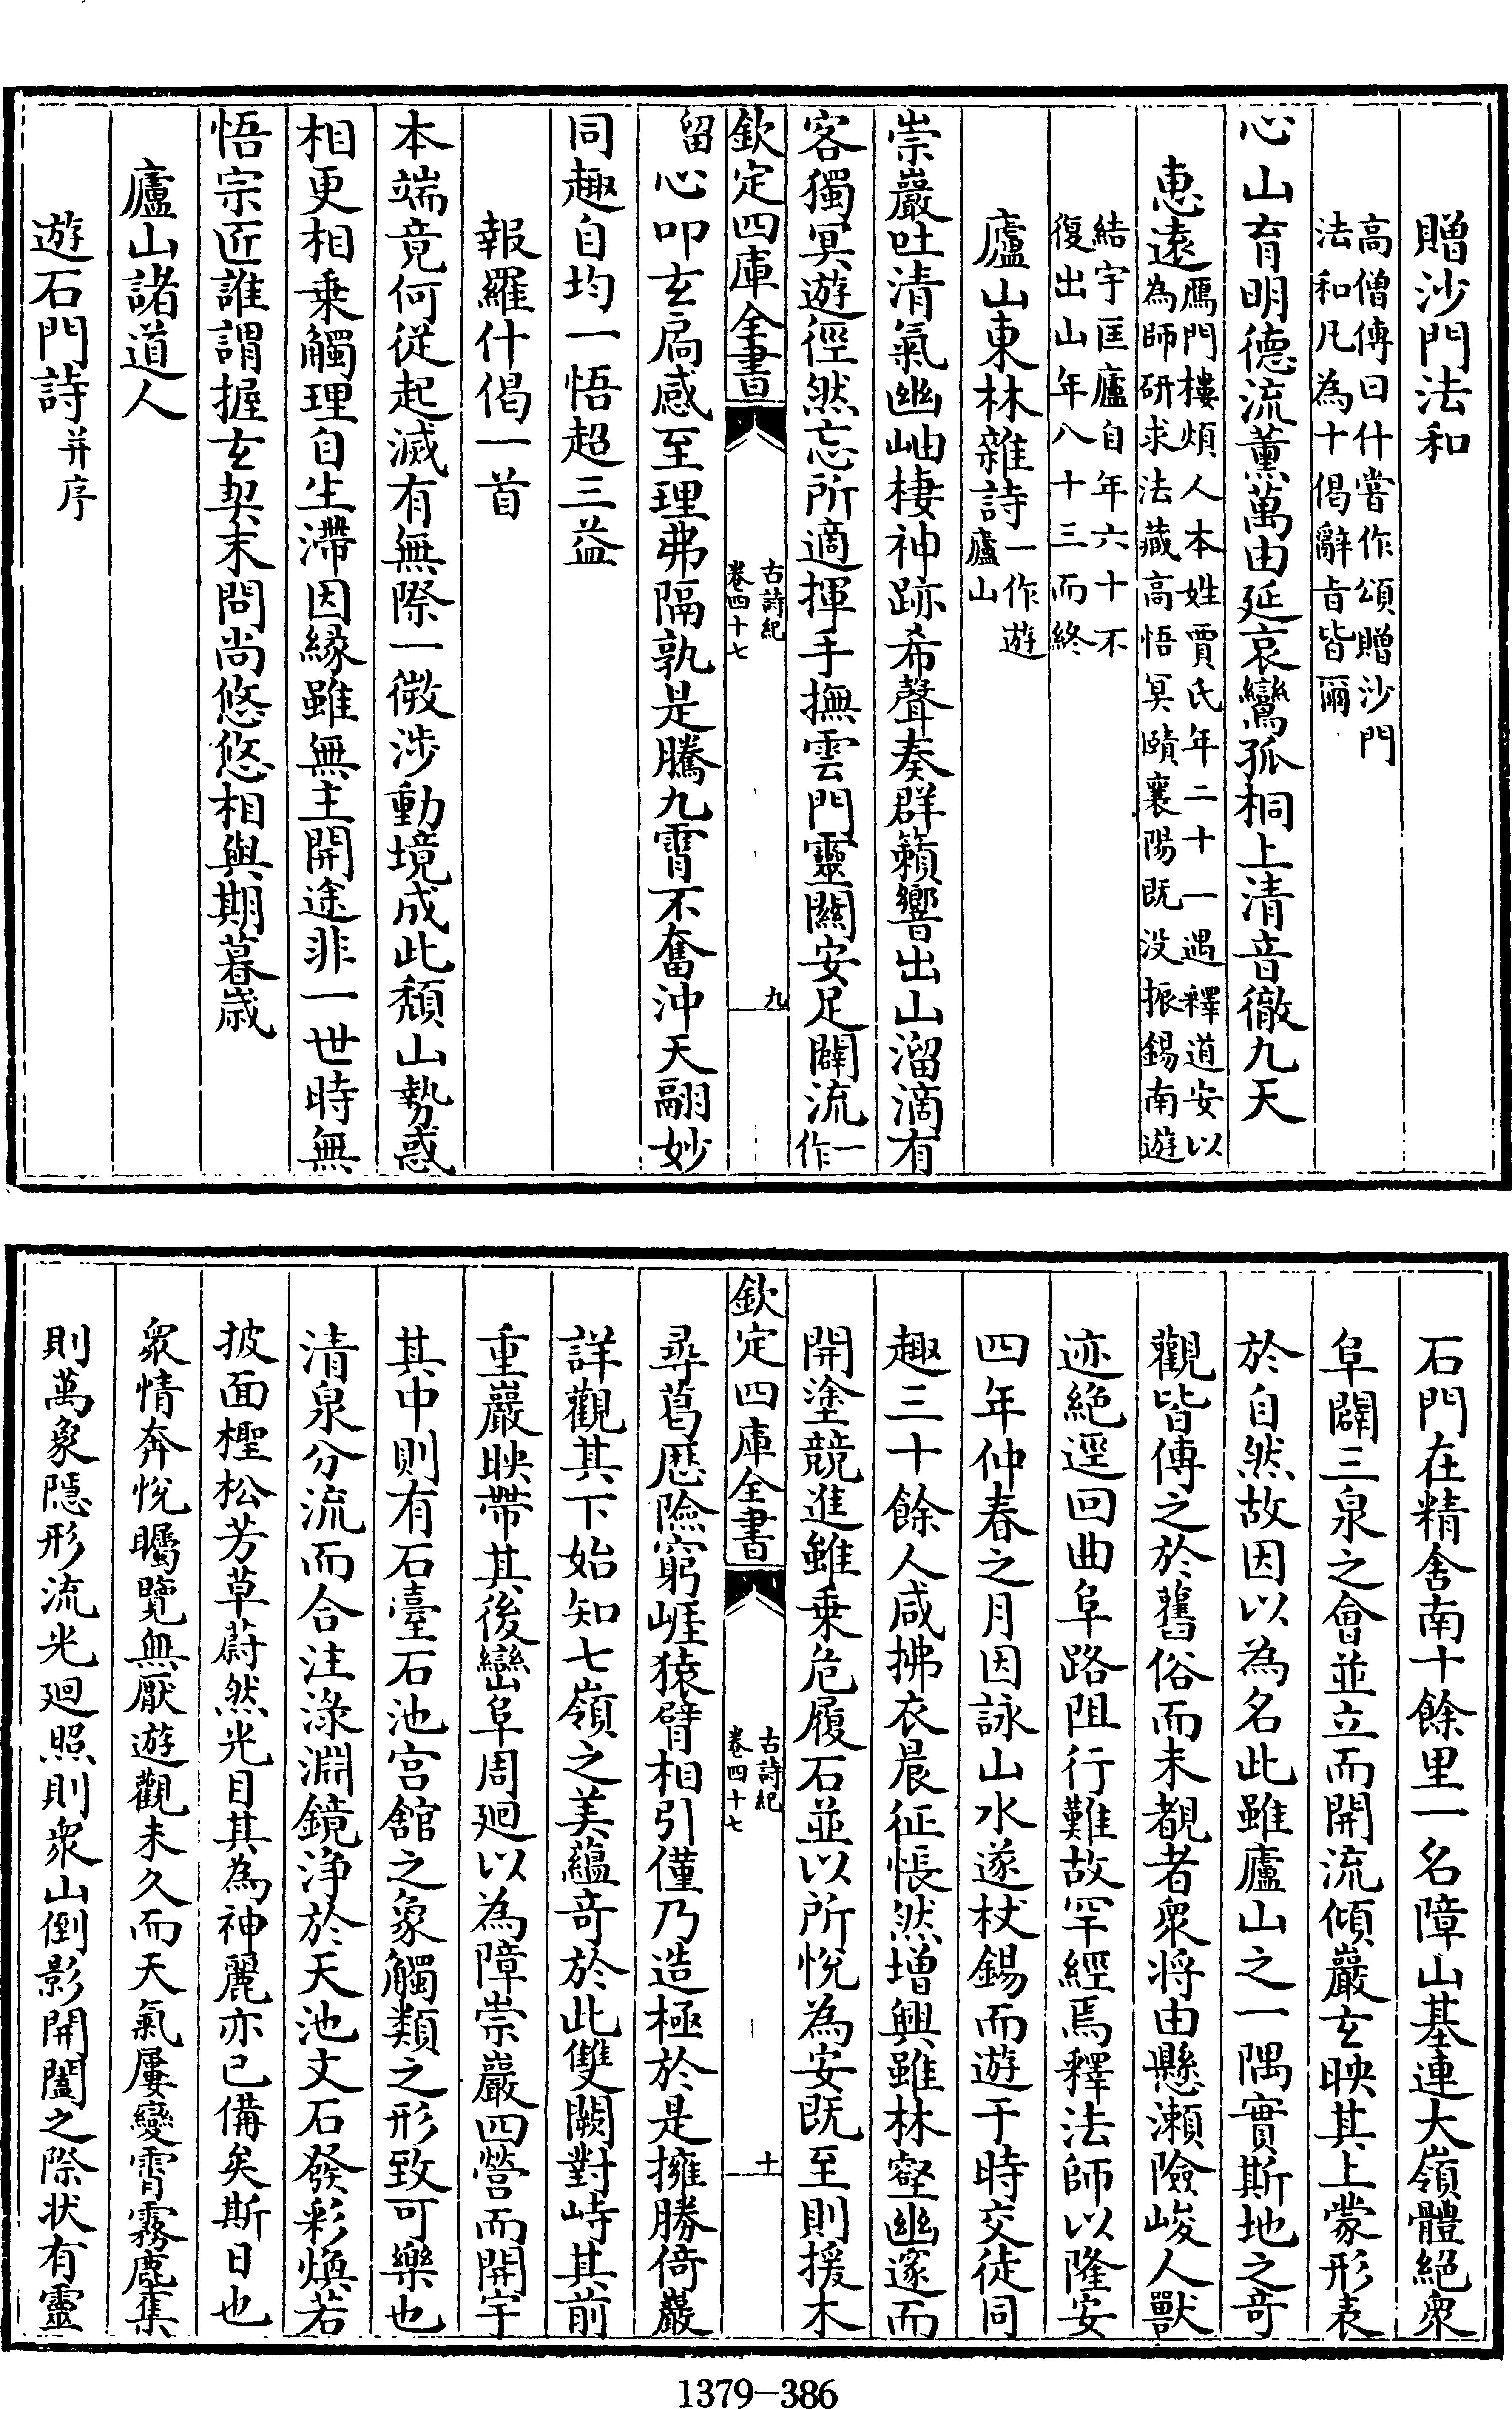 贈沙門法和
高僧傳曰什嘗作頌贈沙門
法和凡為十偈辭旨皆爾
心山育明德流薰萬由延哀鸞孤桐上清音徹九天
惠遠
鴈門樓煩人本姓賈氏年二十一遇釋道安以
為師研求法藏高悟冥賾襄陽既没振錫南遊
結宇匡廬自年六十不
復出山年八十三而終
廬山東林雜詩
一作遊
廬山
崇巖吐清氣幽岫棲神跡希聲奏群籟響出山溜滴有
客獨冥遊徑然忘所適揮手撫雲門靈關安足闢流
一
作
欽定四庫全書
古詩紀
卷四十七
九
留
心叩玄扃感至理弗隔孰是騰九霄不奮沖天翮妙
同趣自均一悟超三益
報羅什偈一首
本端竟何從起滅有無際一微涉動境成此頹山勢惑
相更相乗觸理自生滯因緣雖無主開途非一世時無
悟宗匠誰謂握玄契末問尚悠悠相與期暮歲
廬山諸道人
遊石門詩并序
石門在精舍南十餘里一名障山基連大嶺體絕衆
阜闢三泉之會並立而開流傾巖玄映其上蒙形表
於自然故因以為名此雖廬山之一隅實斯地之奇
觀皆傳之於舊俗而未覩者衆將由懸瀬險峻人獸
迹絕逕回曲阜路阻行難故罕經焉釋法師以隆安
四年仲春之月因詠山水遂杖錫而遊于時交徒同
趣三十餘人咸拂衣晨征悵然增興雖林壑幽邃而
開塗競進雖乗危履石並以所悅為安既至則援木
欽定四庫全書
古詩紀
卷四十七
十
尋葛歴險窮崕猿臂相引僅乃造極於是擁勝倚巖
詳觀其下始知七嶺之美藴奇於此雙闕對峙其前
重巖映帶其後巒阜周廻以為障崇巖四營而開宇
其中則有石臺石池宮館之象觸類之形致可樂也
清泉分流而合注渌淵鏡浄於天池文石發彩煥若
披面檉松芳草蔚然光目其為神麗亦已備矣斯日也
衆情奔悅矚覽無厭遊觀未久而天氣屢變霄霧塵集
則萬象隱形流光廻照則衆山倒影開闔之際状有靈
1379-386